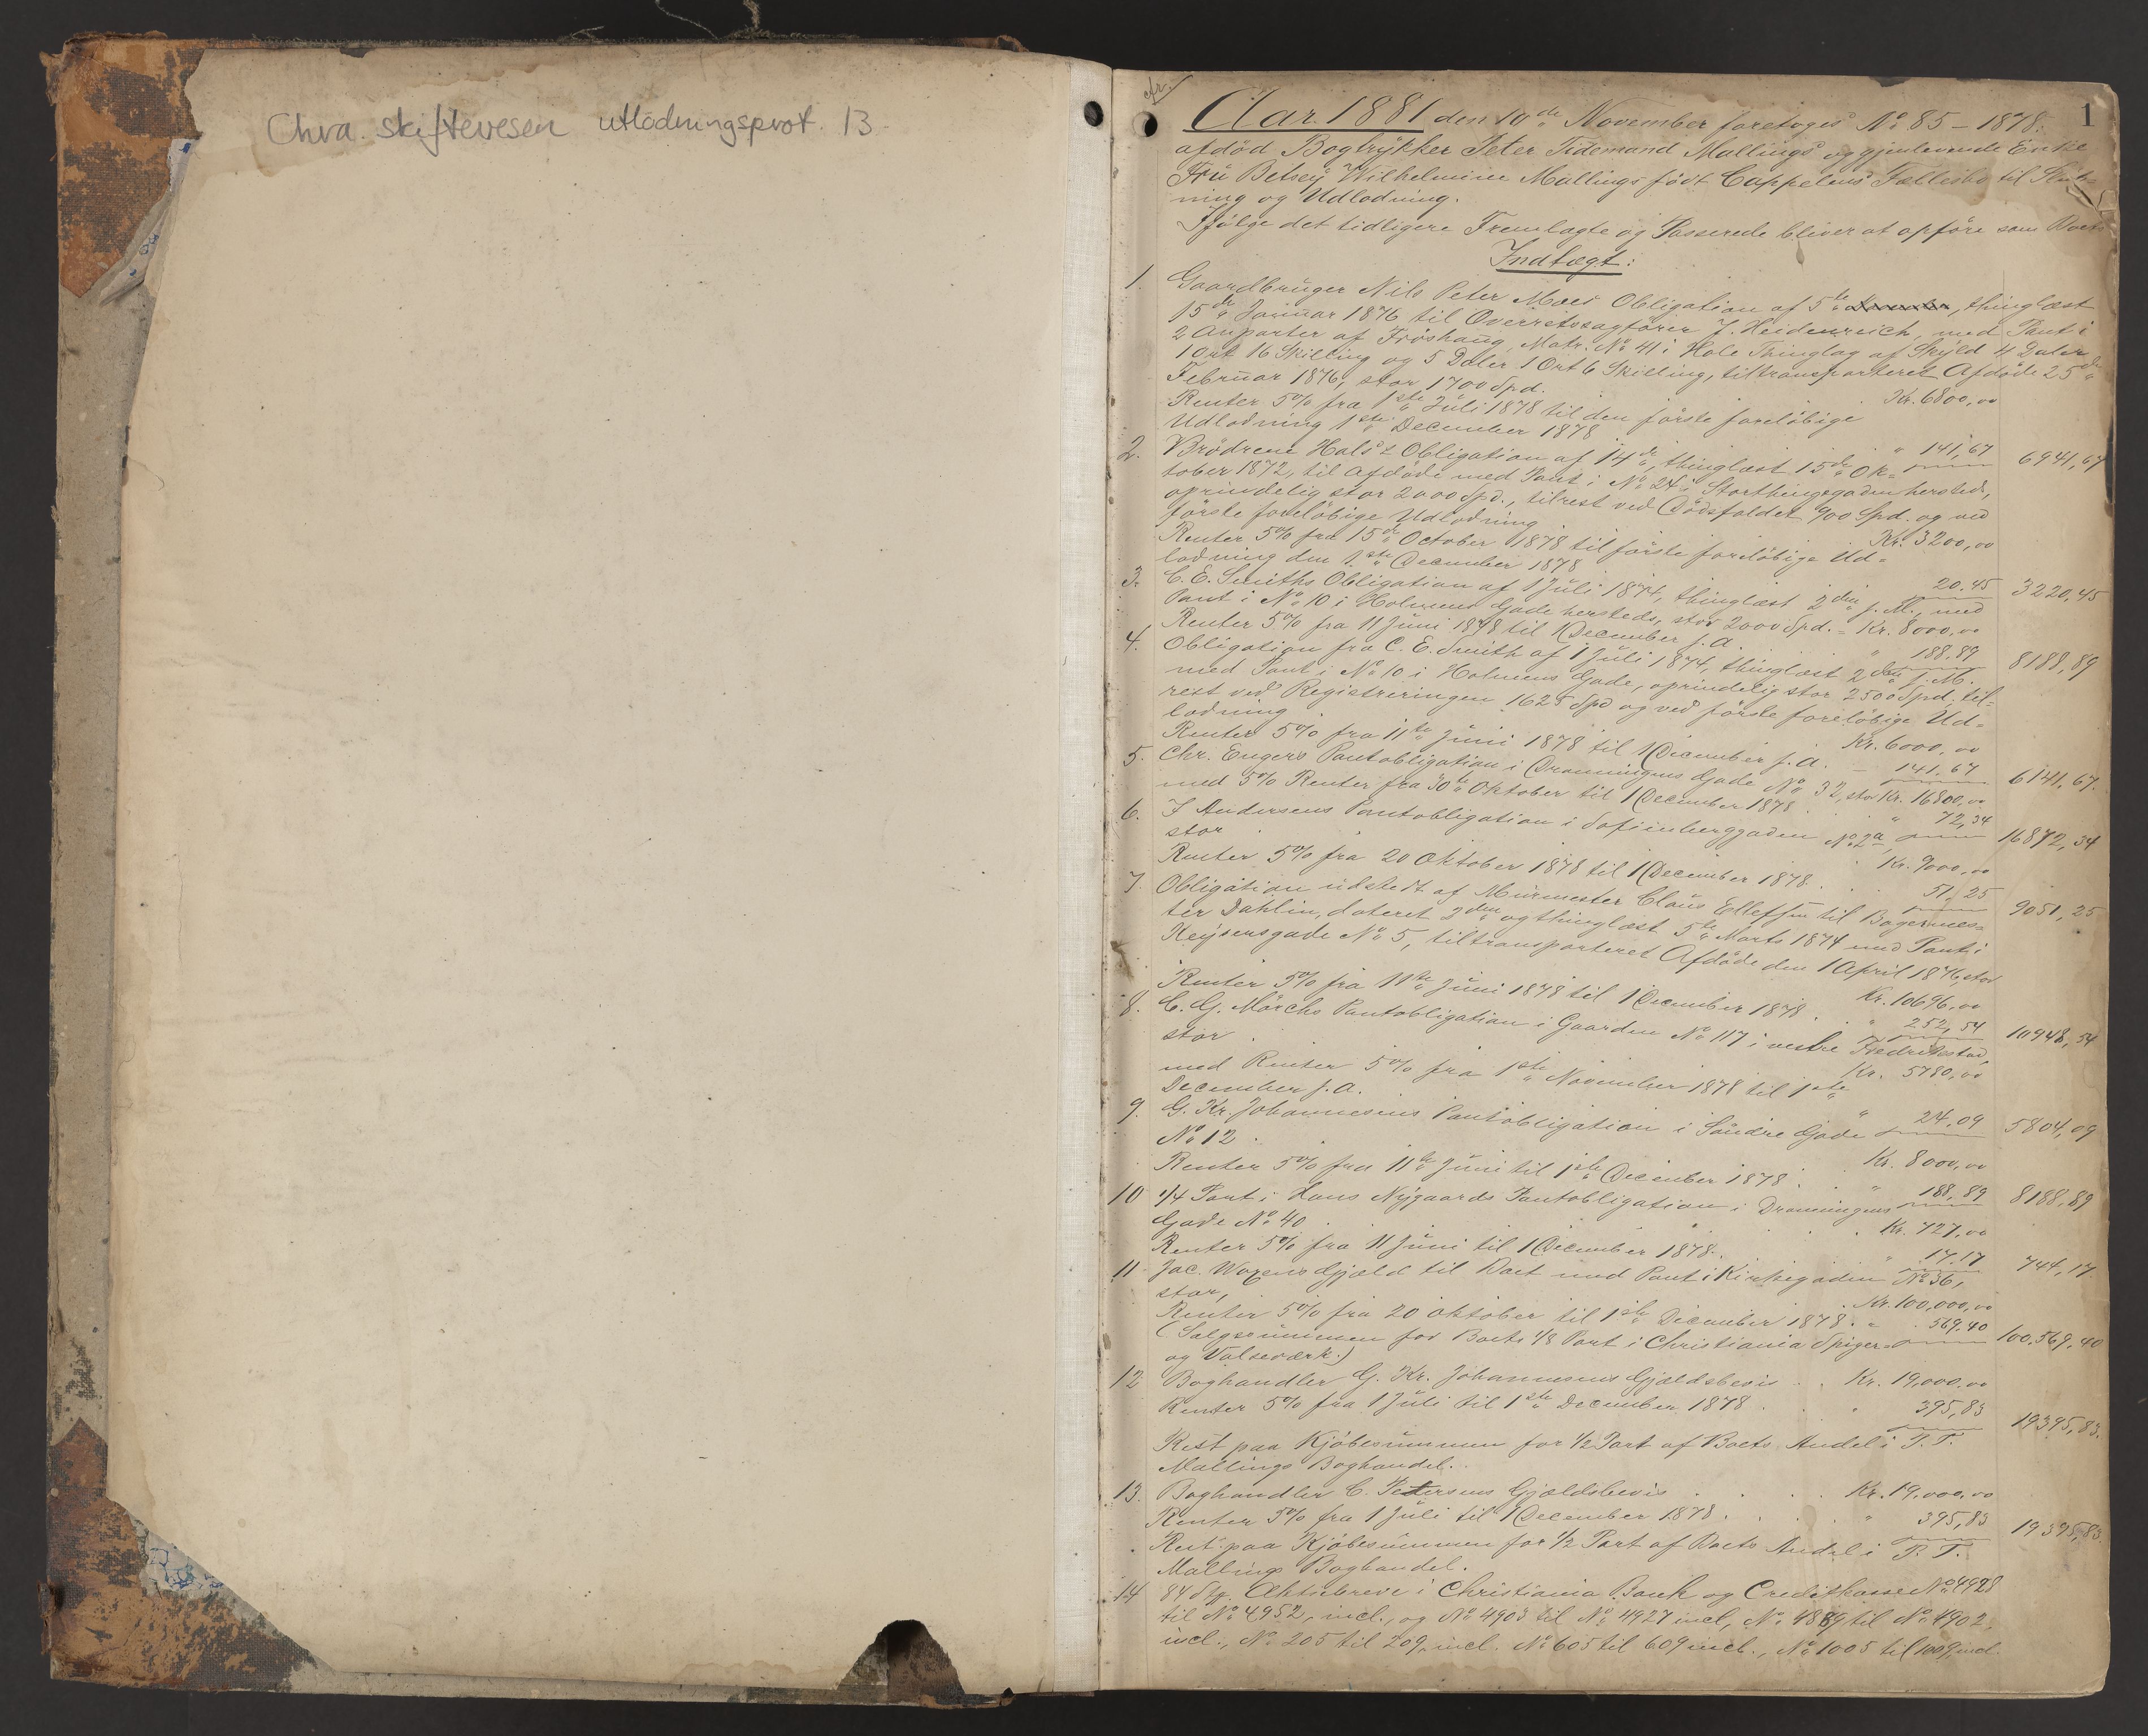 Chra. skiftevesen utlodningsprot. 13
cfr.
1
Aar 1881 den 10de November foretoges No 85 – 1878:
afdød Bogtrykker Peter Tidemand Mallings og gjenlevende Enke
Fru Betsey Wilhelmine Mallings født Cappelens Fællesbo til Slut-
ning og Udlodning.
Ifølge det tidligere Fremlagte og Passerede bliver at opføre som Boets
Indtægt:
1. Gaardbruger Nils Peter Moes Obligation af 5te, thinglæst
15de Januar 1876 til Overretssagfører J. Heidenreich, med Pant i
2 Anparter af Frøshaug, Matr. No 41 i Hole Thinglag af Skyld 4 Daler
1 Ort 16 Skilling og 5 Daler 1 Ort 6 Skilling, tiltransporteret Afdøde 25de
Februar 1876, stor 1700 Spd. Kr. 6800,00
Renter 5% fra 1ste Juli 1878 til den første foreløbige
Udlodning 1ste December 1878 " 141,67 6941,67
2. Brødrene Hals's Obligation af 14de, thinglæst 15de Ok-
tober 1872, til Afdøde med Pant i No 24 i Storthingsgaden hersteds,
oprindelig stor 2000 Spd., tilrest ved Dødsfaldet 900 Spd. og ved
første foreløbige Udlodning Kr. 3200,00
Renter 5% fra 15de October 1878 til første foreløbige Ud-
lodning den 1ste December 1878 20.45 3220,45
3. C. E. Smiths Obligation af 1 Juli 1874, thinglæst 2den s. M., med
Pant i No 10 i Holmens Gade hersteds, stor 2000 Spd. = Kr. 8000,00
Renter 5% fra 11 Juni 1878 til 1 December s. A. " 188.89 8188,89
4. Obligation fra C. E. Smith af 1 Juli 1874, thinglæst 2den s. M.
med Pant i No 10 i Holmens Gade, oprindelig stor 2500 Spd, til-
rest ved Registreringen 1625 Spd og ved første foreløbige Ud-
lodning Kr. 6000,00
Renter 5% fra 11te Juni 1878 til 1 December s. A. – 141.67 6141,67.
5. Chr. Engers Pantobligation i Dronningens Gade No 32, stor Kr. 16800,00
med 5% Renter fra 30te Oktober til 1 December 1878 " 72,34 16872,34
6. J Andersens Pantobligation i Sofienberggaden No 2a
stor Kr. 9000,00
Renter 5% fra 20 Oktober 1878 til 1 December 1878 . . 51,25 9051,25
7. Obligation udstedt af Murmester Claus Ellefsen til Bagermes-
ter Dahlin, dateret 2den og thinglæst 5te Marts 1874 med Pant i
Keysersgade No 5, tiltransporteret Afdøde den 1 April 1876, stor
Kr. 10696,00
Renter 5% fra 11te Juni 1878 til 1 December 1878 . " 252,54 10948,54
8. C. G. Mörchs Pantobligation i Gaarden No 117 i vestre Fredrikstad,
stor Kr. 5780,00
med Renter 5% fra 1ste November 1878 til 1ste
December s. A. " 24,09 5804,09
9. G. Kr. Johannesens Pantobligation i Søndre Gade
No 12 . Kr. 8000,00
Renter 5% fra 11te Juni til 1ste December 1878 . . " 188,89 8188,89
10 1/4 Part i Hans Nygaards Pantobligation i Dronningens
Gade No 40 . . . Kr. 727,00
Renter 5% fra 11 Juni til 1 December 1878. " 17.17 744,17.
11 Jac. Woxens Gjæld til Boet med Pant i Kirkegaden No 36,
stor, Kr. 100,000,00
Renter 5% fra 20 Oktober til 1ste December 1878. " 569.40 100,569,40
(Salgssummen for Boets 1/8 Part i Christiania Spiger-
og Valseværk.)
12 Boghandler G. Kr. Johannesens Gjældsbevis . . Kr. 19,000,00
Renter 5% fra 1 Juli til 1ste December 1878 . " 395,83 19395,83.
Rest paa Kjøbesummen for 1/2 Part af Boets Andel i P. T.
Mallings Boghandel.
13. Boghandler C. Petersens Gjældsbevis . . . Kr. 19,000,00
Renter 5% fra 1 Juli til 1 December 1878 . . . " 395,83 19395,83.
Rest paa Kjøbesummen for 1/2 Part af Boets Andel i P. T.
Mallings Boghandel.
14 84 Stk. Aktiebreve i Christiania Bank og Creditkasse No 4928
til No 4952, incl., og No 4903 til No 4927 incl, No 4889 til No 4902,
incl., No 205 til 209, incl. No 605 til 609 incl., No 1005 til 1009, incl.